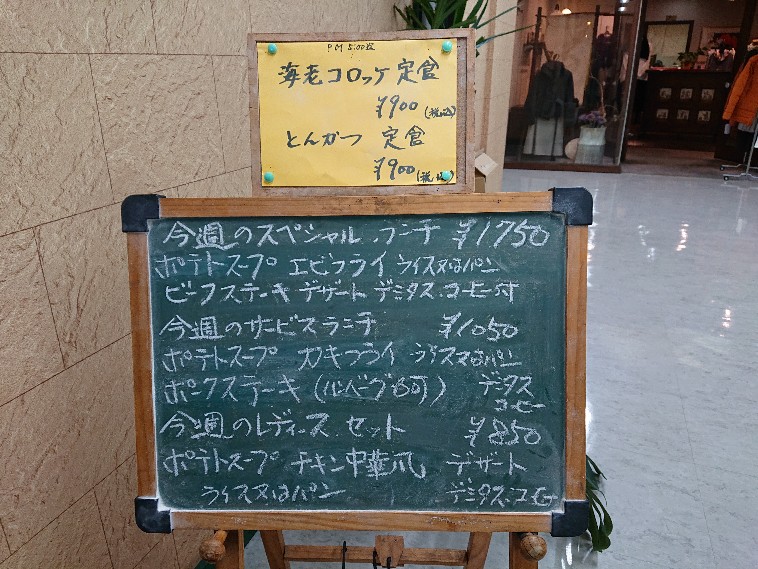 PM 5:00迄
海老コロッケ定食
¥900 (税込)
とんかつ 定食
¥900 (税込)
今週のスペシャル.ランチ ¥1750
ポテトスープ エビフライ ライス又はパン
ビーフステーキ デザート デミタス.コーヒー付
今週のサービスランチ ¥1050
ポテトスープ カキフライ ライス又はパン
ポークステーキ (ハンバーグも可) デミタス
コーヒー
今週のレディース.セット ¥850
ポテトスープ チキン中華風 デザート
ライス又はパン デミタス.コーヒー